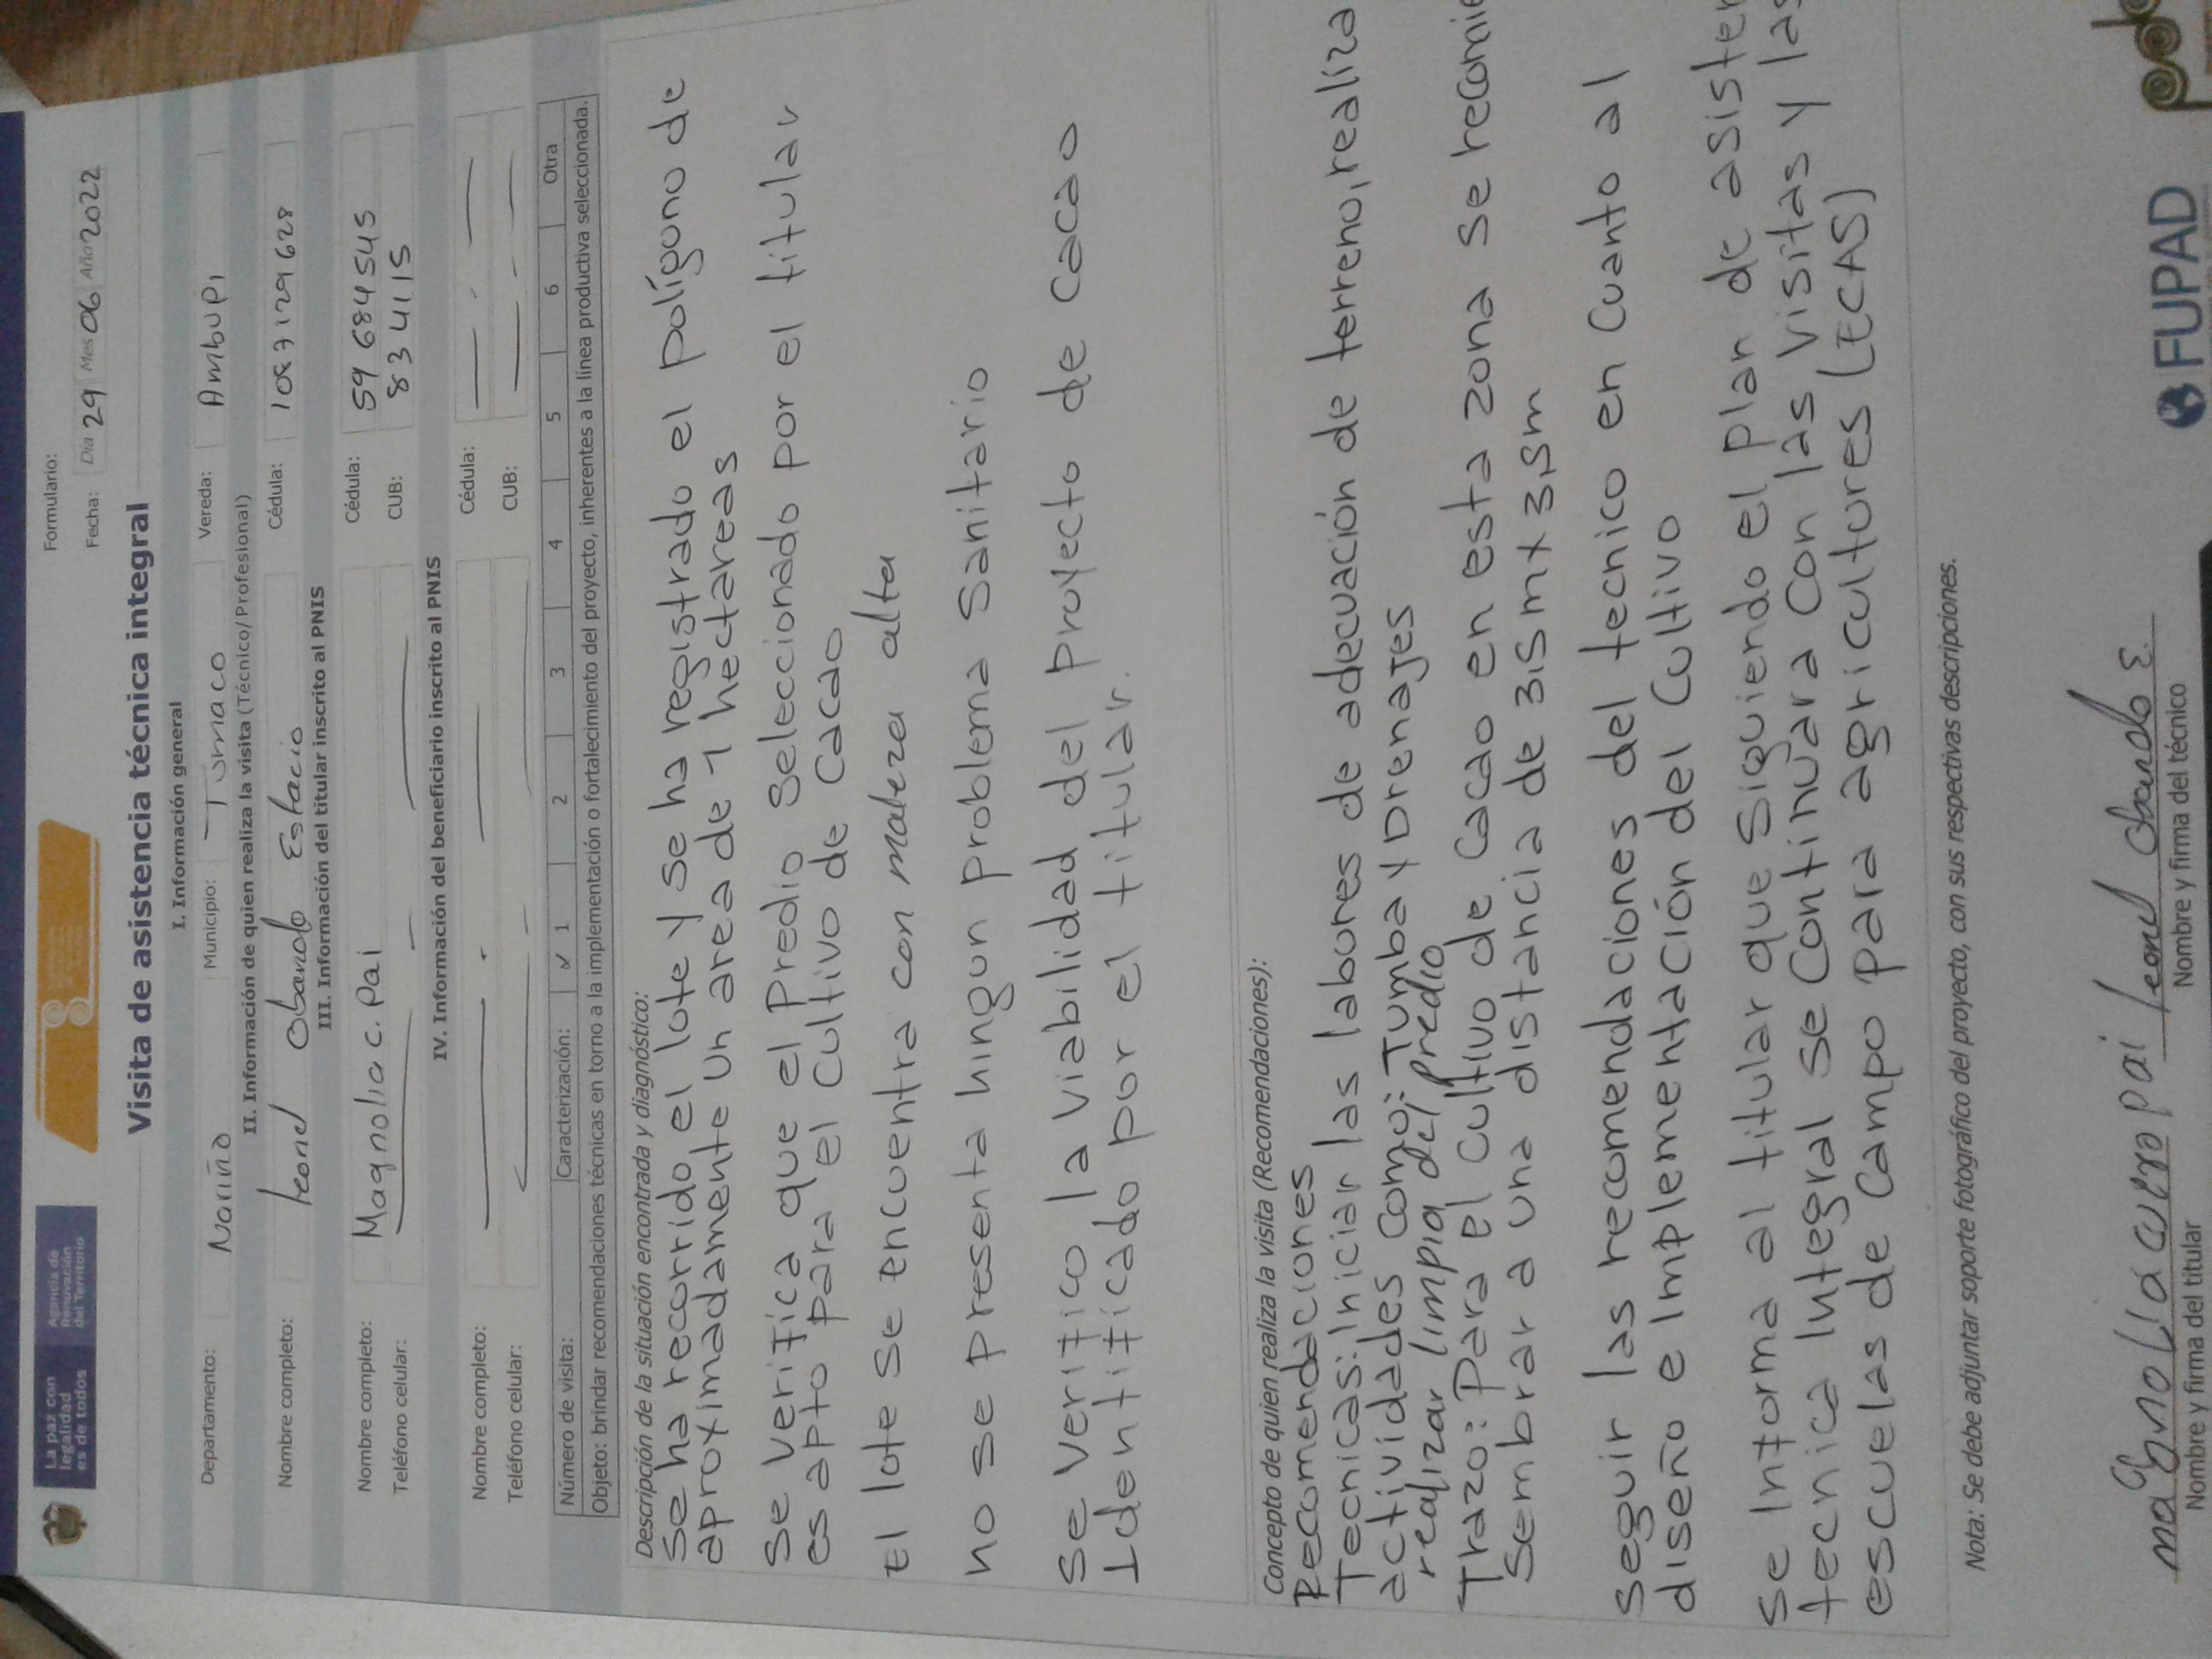 La paz con
legalidad
es de todos
Agencia de
Renovación
del Territorio
Formulario:
Fecha: Día 29 Mes 06 Año 2022
Visita de asistencia técnica integral
I. Información general
Departamento: Nariño Municipio: Tumaco Vereda: Ambupi
II. Información de quien realiza la visita (Técnico/Profesional)
Nombre completo: leonel obando Estacio Cédula: 1087129628
III. Información del titular inscrito al PNIS
Nombre completo: Magnolia c. Pai Cédula: 59 684 545
Teléfono celular: CUB: 834115
IV. Información del beneficiario inscrito al PNIS
Nombre completo: Cédula:
Teléfono celular: CUB:
Número de visita: Caracterización: ✓ 1 2 3 4 5 6 Otra
Objeto: brindar recomendaciones técnicas en torno a la implementación o fortalecimiento del proyecto, inherentes a la línea productiva seleccionada.
Descripción de la situación encontrada y diagnóstico:
Se ha recorrido el lote y se ha registrado el polígono de
aproximadamente un area de 1 hectareas
Se verifica que el Predio Seleccionado por el titular
es apto para el cultivo de cacao
El lote se encuentra con maleza alta
no se presenta ningun problema Sanitario
Se verifico la viabilidad del proyecto de cacao
Identificado por el titular.
Concepto de quien realiza la visita (Recomendaciones):
Recomendaciones
Tecnicas: Iniciar las labores de adecuación de terreno, realiza
actividades como: Tumba y Drenajes
realizar limpia del predio
Trazo: Para el cultivo de cacao en esta zona se recomie
Sembrar a una distancia de 3,5m x 3,5m
Seguir las recomendaciones del tecnico en cuanto al
diseño e Implementación del cultivo
Se Informa al titular que Siguiendo el plan de asisten
tecnica Integral se continuara con las visitas y las
escuelas de campo para agricultores (ECAS)
Nota: Se debe adjuntar soporte fotográfico del proyecto, con sus respectivas descripciones.
magnolia cuero pai
Nombre y firma del titular
leonel obando E.
Nombre y firma del técnico
FUPAD